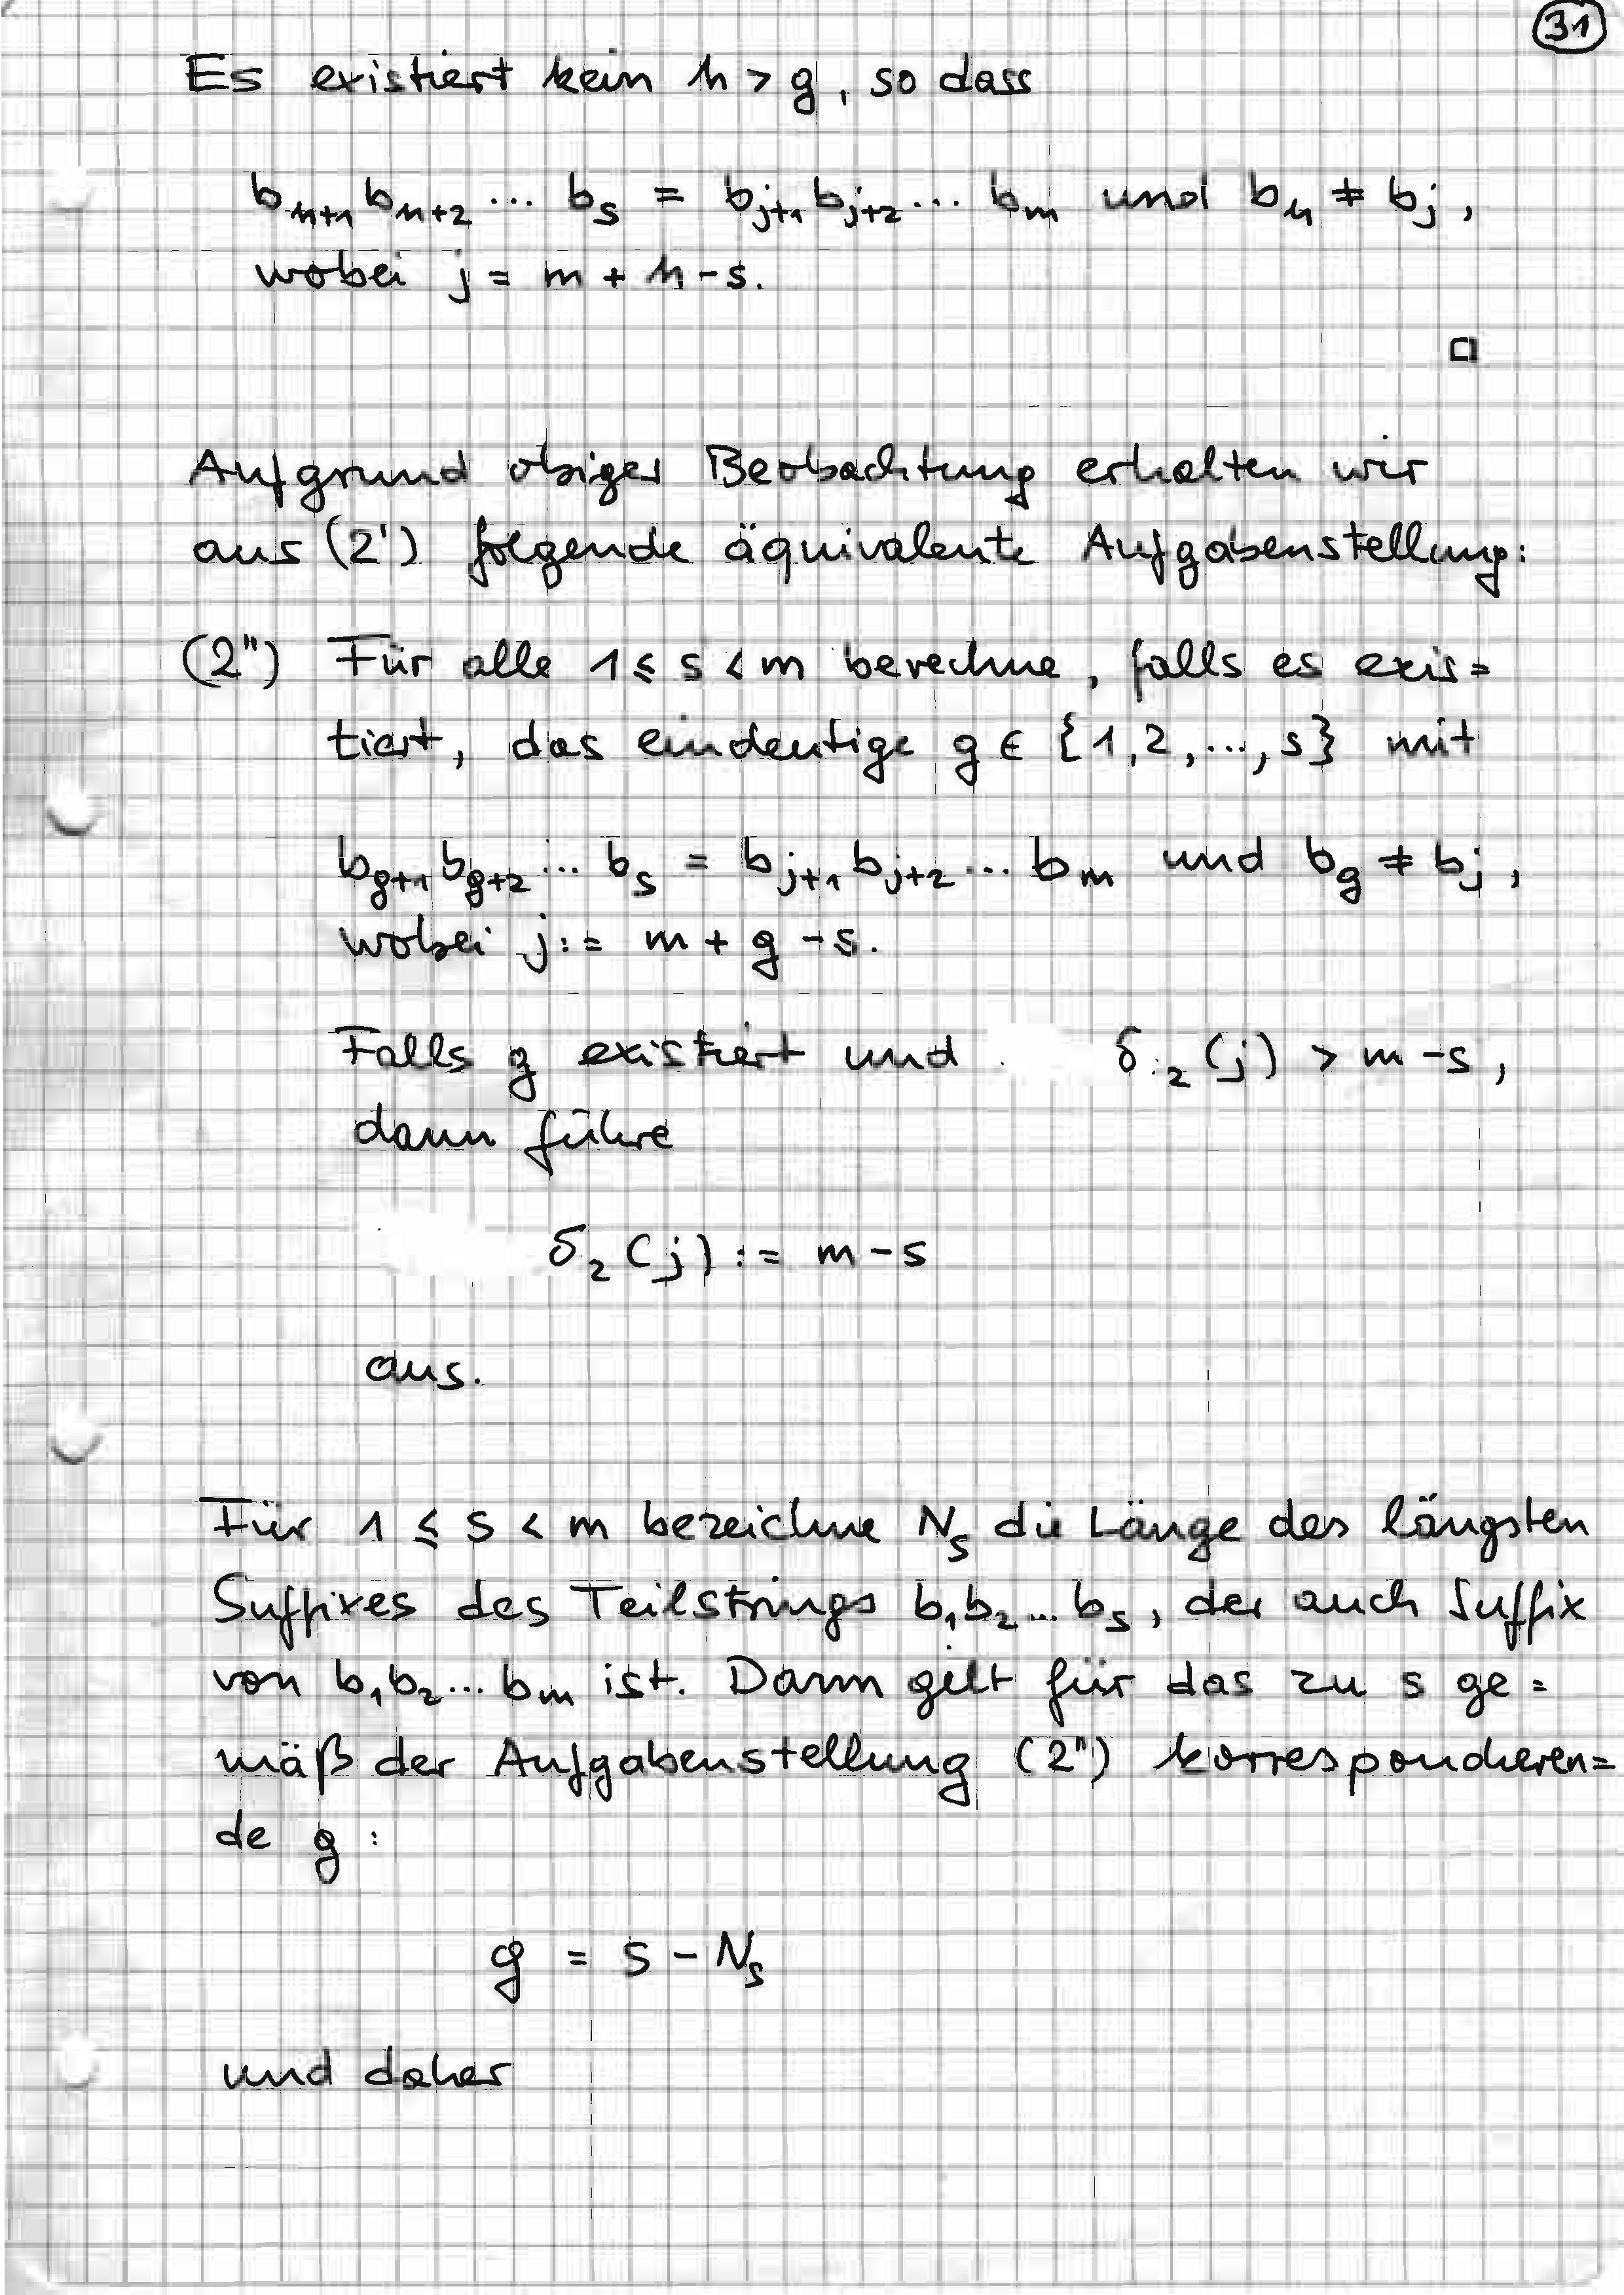 31
Es existiert kein h > g, so dass
b_{h+1} b_{h+2} ... b_s = b_{j+1} b_{j+2} ... b_m und b_h ≠ b_j,
wobei j = m + h - s.
□
Aufgrund obiger Beobachtung erhalten wir
aus (2') folgende äquivalente Aufgabenstellung:
(2'') Für alle 1 ≤ s < m berechne, falls es exis=
tiert, das eindeutige g ∈ {1,2,...,s} mit
b_{g+1} b_{g+2} ... b_s = b_{j+1} b_{j+2} ... b_m und b_g ≠ b_j,
wobei j := m + g - s.
Falls g existiert und δ_2(j) > m - s,
dann führe
δ_2(j) := m - s
aus.
Für 1 ≤ s < m bezeichne N_s die Länge des längsten
Suffixes des Teilstrings b_1 b_2 ... b_s, der auch Suffix
von b_1 b_2 ... b_m ist. Dann gilt für das zu s ge=
mäß der Aufgabenstellung (2'') korrespondieren=
de g:
g = s - N_s
und daher